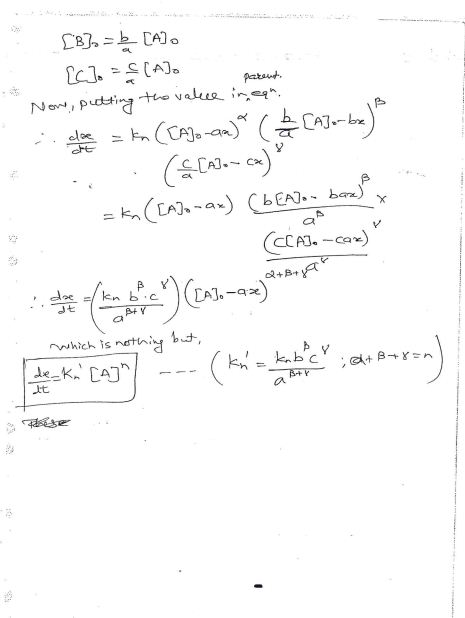 [B]₀ = b/a [A]₀
[C]₀ = c/a [A]₀
Now, putting the value in parent eqⁿ.
∴ dx/dt = kn ([A]₀-ax)^α (b/a [A]₀-bx)^β
(c/a [A]₀-cx)^γ
= kn ([A]₀-ax) (b[A]₀- bax)^β/a^β ×
(c[A]₀-cax)^γ/a^γ
∴ dx/dt = (kn b^β·c^γ/a^(β+γ)) ([A]₀-ax)^(α+β+γ)
which is nothing but,
dx/dt = Kn' [A]^n --- (Kn' = knb^βc^γ/a^(β+γ) ; α+β+γ=n)